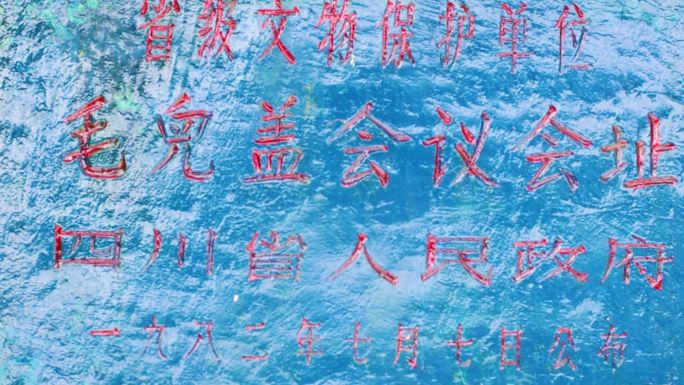 省级文物保护单位
毛兒盖会议会址
四川省人民政府
一九八二年七月七日公布